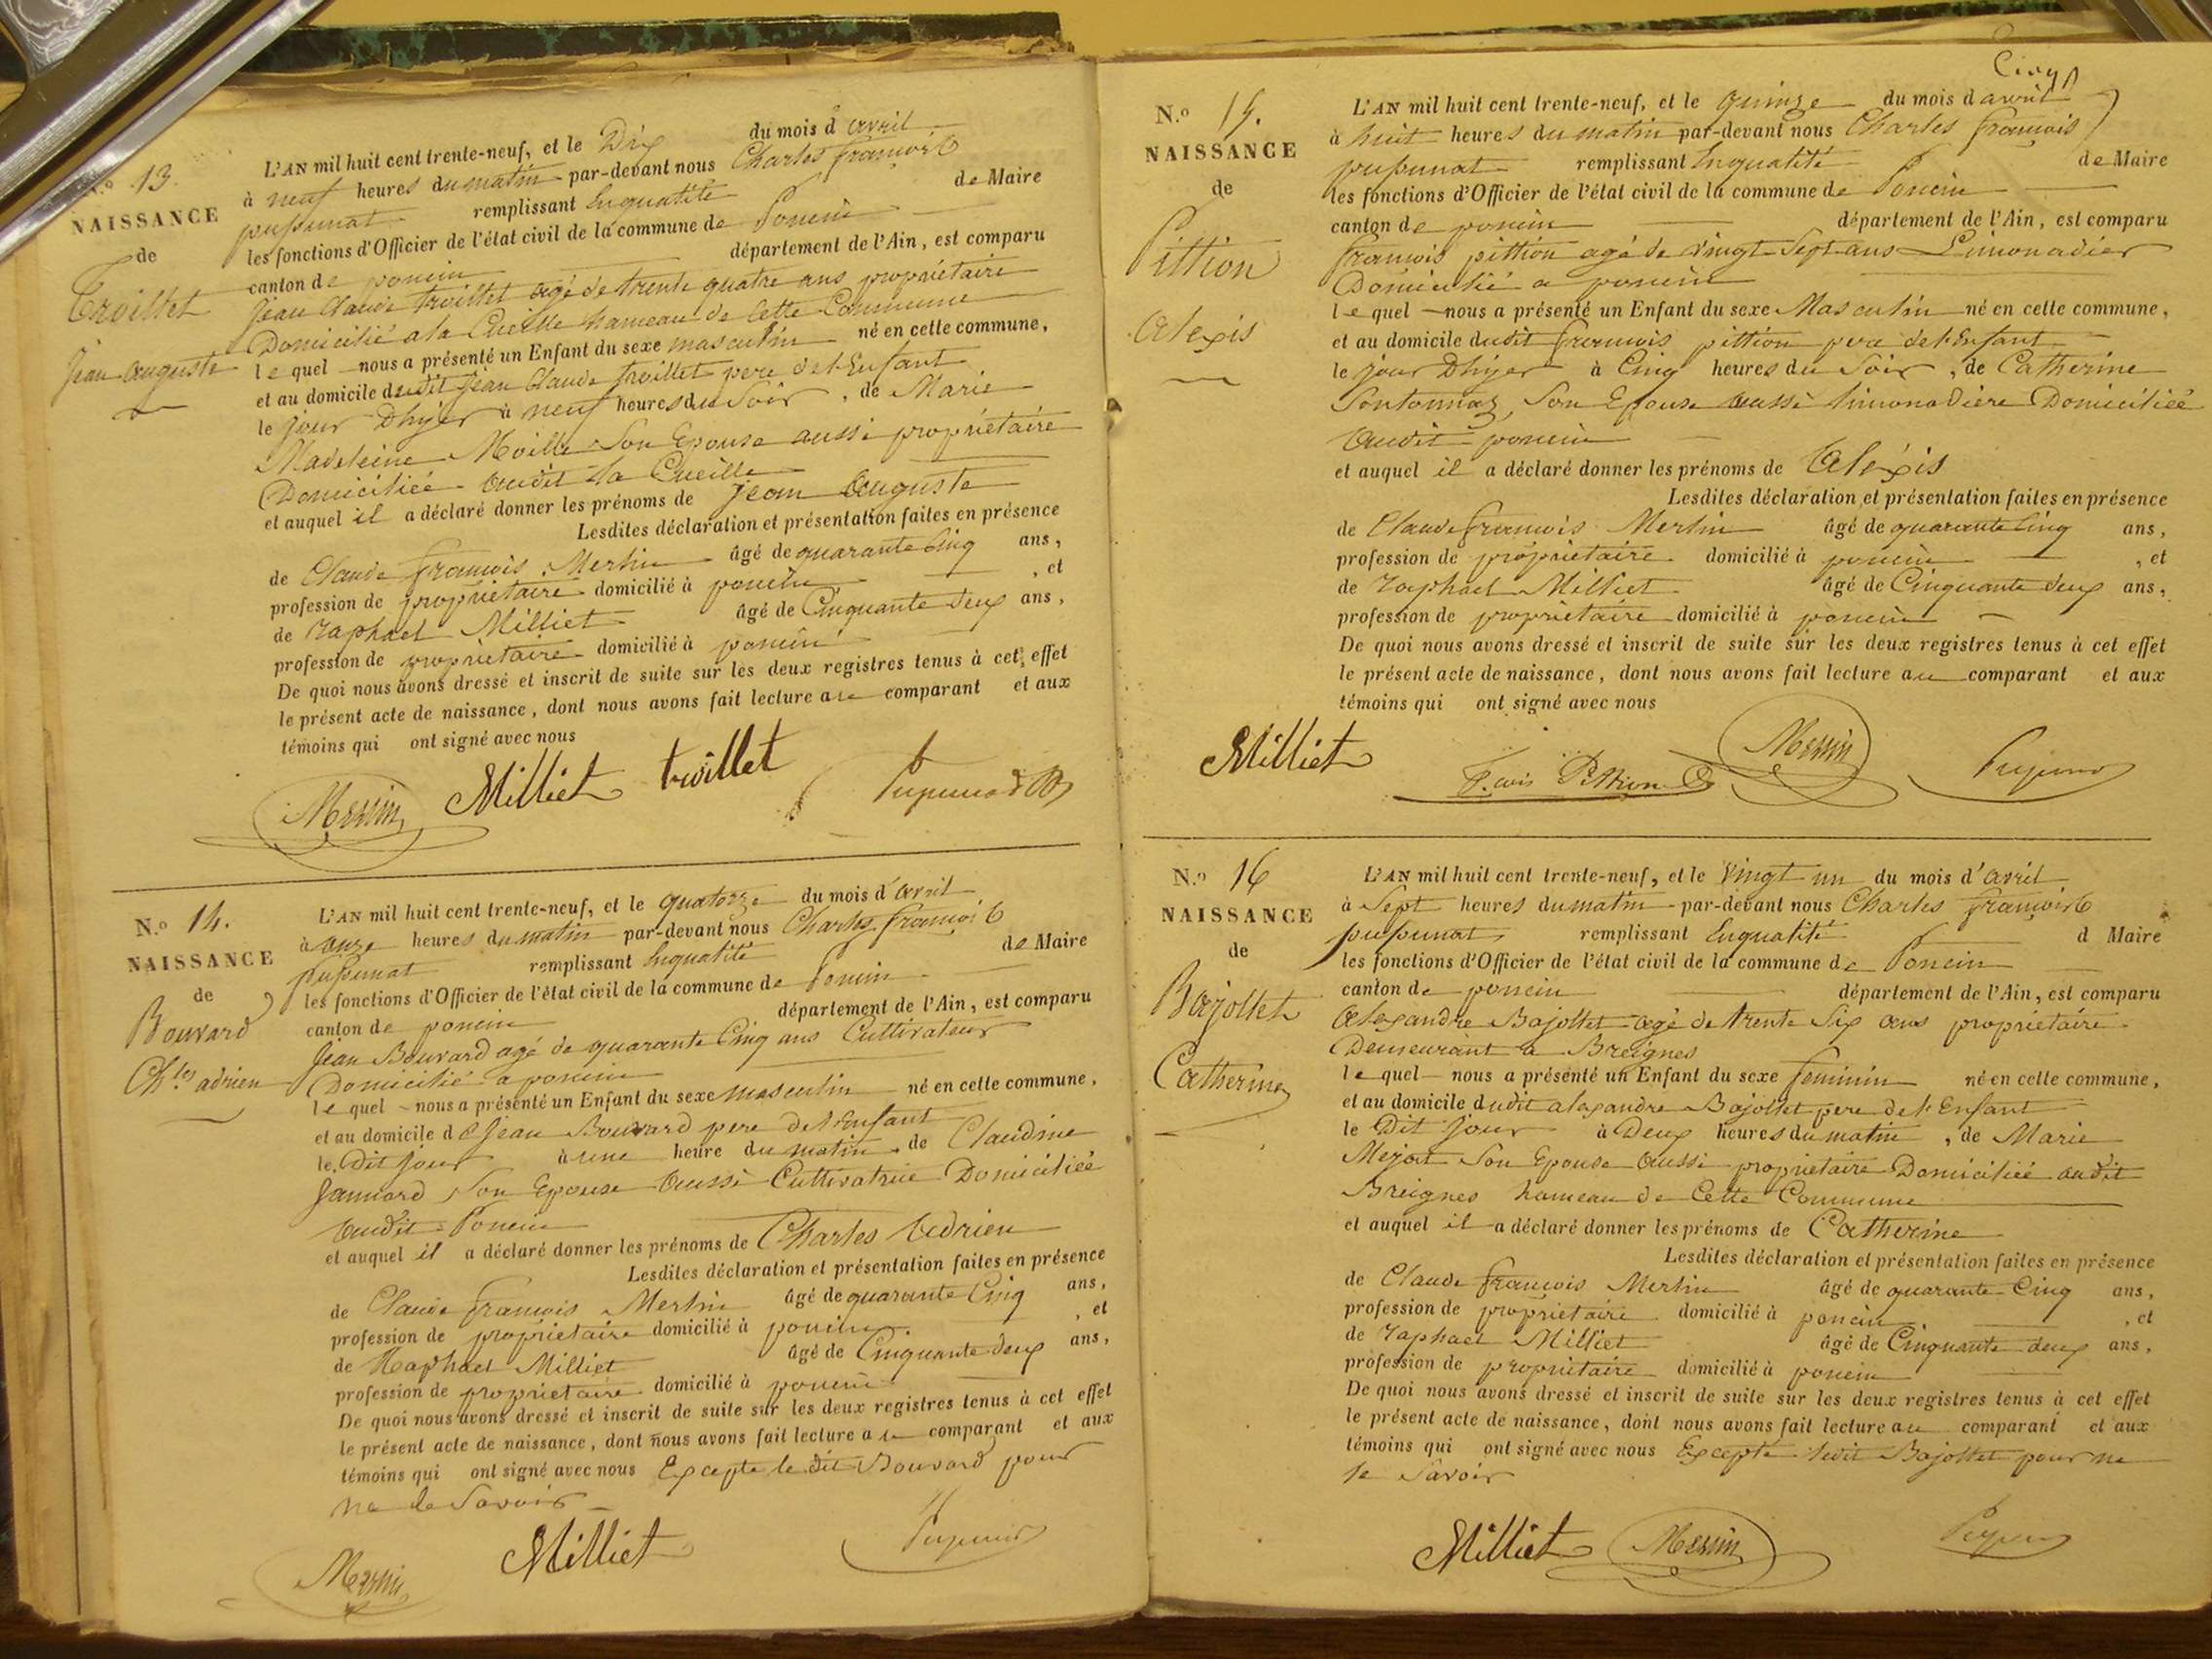 N.o 13.
NAISSANCE
de
Troillet
Jean Auguste
L'AN mil huit cent trente-neuf, et le Dix du mois d'avril
à neuf heures du matin par-devant nous Charles françois
pupunat remplissant Enqualité de Maire
les fonctions d'Officier de l'état civil de la commune de Poncin
canton de poncin département de l'Ain, est comparu
Jean Claude troillet agé de trente quatre ans propriétaire
Domicilié a la Cueille hameau de Cette Commune
lequel nous a présenté un Enfant du sexe masculin né en cette commune,
et au domicile dudit Jean Claude troillet pere de l'Enfant
le jour Dhyer à neuf heures du Soir, de Marie
Madeleine Moille Son Epouse aussi propriétaire
Domiciliée audit la Cueille
et auquel il a déclaré donner les prénoms de Jean Auguste
Lesdites déclaration et présentation faites en présence
de Claude françois Merlin âgé de quarante Cinq ans,
profession de propriétaire domicilié à poncin, et
de raphael Milliet âgé de Cinquante Deux ans,
profession de propriétaire domicilié à poncin
De quoi nous avons dressé et inscrit de suite sur les deux registres tenus à cet effet
le présent acte de naissance, dont nous avons fait lecture au comparant et aux
témoins qui ont signé avec nous
Merlin Milliet troillet Pupunat
N.o 14.
NAISSANCE
de
Bouvard
Ch.les adrien
L'AN mil huit cent trente-neuf, et le quatorze du mois d'avril
à onze heures du matin par-devant nous Charles françois
pupunat remplissant Enqualité de Maire
les fonctions d'Officier de l'état civil de la commune de Poncin
canton de poncin département de l'Ain, est comparu
Jean Bouvard agé de quarante Cinq ans Cultivateur
Domicilié a poncin
lequel nous a présenté un Enfant du sexe masculin né en cette commune,
et au domicile de Jean Bouvard pere de l'Enfant
le Dit jour à une heure du matin de Claudine
Jannard Son Epouse Aussi Cultivatrice Domiciliée
Audit Poncin
et auquel il a déclaré donner les prénoms de Charles Adrien
Lesdites déclaration et présentation faites en présence
de Claude françois Merlin âgé de quarante Cinq ans,
profession de propriétaire domicilié à poncin, et
de Raphael Milliet âgé de Cinquante deux ans,
profession de propriétaire domicilié à poncin
De quoi nous avons dressé et inscrit de suite sur les deux registres tenus à cet effet
le présent acte de naissance, dont nous avons fait lecture au comparant et aux
témoins qui ont signé avec nous Excepte le dit Bouvard pour
ne le Savoir
Merlin Milliet Pupunat
Cinq
N.o 15.
NAISSANCE
de
Pittion
Alexis
L'AN mil huit cent trente-neuf, et le quinze du mois d'avril
à huit heures du matin par-devant nous Charles françois
pupunat remplissant Enqualité de Maire
les fonctions d'Officier de l'état civil de la commune de Poncin
canton de poncin département de l'Ain, est comparu
françois pittion agé de vingt Sept ans Limonadier
Domicilié a poncin
lequel nous a présenté un Enfant du sexe Masculin né en cette commune,
et au domicile dudit françois pittion pere de l'Enfant
le jour Dhyer à Cinq heures du Soir, de Catherine
Sontonnaz, Son Epouse Aussi limonadière Domiciliée
Audit poncin
et auquel il a déclaré donner les prénoms de Alexis
Lesdites déclaration et présentation faites en présence
de Claude françois Merlin âgé de quarante Cinq ans,
profession de propriétaire domicilié à poncin, et
de raphael Milliet âgé de Cinquante deux ans,
profession de propriétaire domicilié à poncin
De quoi nous avons dressé et inscrit de suite sur les deux registres tenus à cet effet
le présent acte de naissance, dont nous avons fait lecture au comparant et aux
témoins qui ont signé avec nous
Milliet F.cois Pittion Merlin Pupunat
N.o 16
NAISSANCE
de
Bajollet
Catherine
L'AN mil huit cent trente-neuf, et le vingt un du mois d'avril
à Sept heures du matin par-devant nous Charles françois
pupunat remplissant Enqualité d Maire
les fonctions d'Officier de l'état civil de la commune de Poncin
canton de poncin département de l'Ain, est comparu
Alexandre Bajollet agé de trente Six ans propriétaire
Demeurant a Breignes
lequel nous a présenté un Enfant du sexe feminin né en cette commune,
et au domicile dudit alexandre Bajollet pere de l'Enfant
le Dit jour à Deux heures du matin, de Marie
Mejat Son Epouse Aussi propriétaire Domiciliée audit
Breignes hameau de Cette Commune
et auquel il a déclaré donner les prénoms de Catherine
Lesdites déclaration et présentation faites en présence
de Claude françois Merlin âgé de quarante Cinq ans,
profession de propriétaire domicilié à poncin, et
de raphael Milliet âgé de Cinquante deux ans,
profession de propriétaire domicilié à poncin
De quoi nous avons dressé et inscrit de suite sur les deux registres tenus à cet effet
le présent acte de naissance, dont nous avons fait lecture au comparant et aux
témoins qui ont signé avec nous Excepte ledit Bajollet pour ne
le Savoir
Milliet Merlin Pupunat